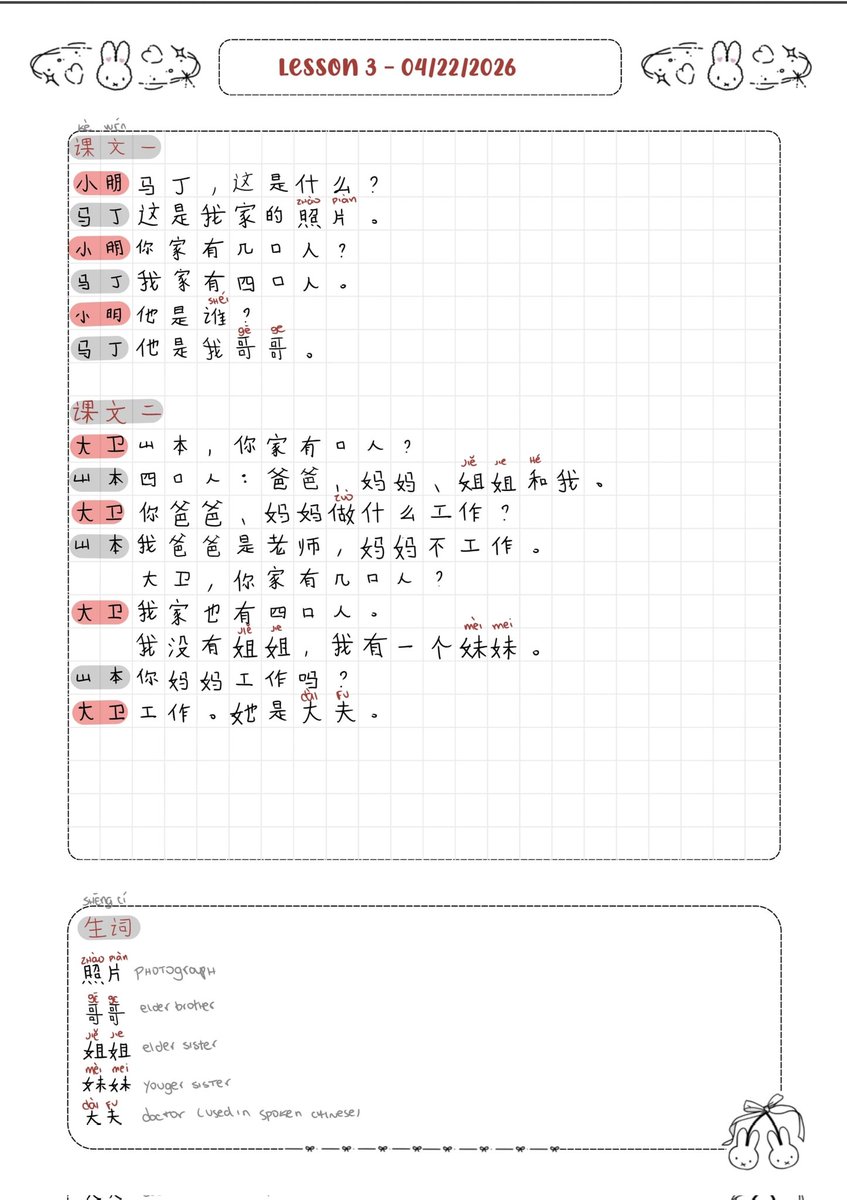 Lesson 3 - 04/22/2026
kè wén
课文一
小朋 马丁，这是什么？
zhào piàn
马丁 这是我家的照片。
小朋 你家有几口人？
马丁 我家有四口人。
shéi
小明 他是谁？
gē ge
马丁 他是我哥哥。
课文二
大卫 山本，你家有口人？
jiě jie hé
山本 四口人：爸爸、妈妈、姐姐和我。
zuò
大卫 你爸爸、妈妈做什么工作？
山本 我爸爸是老师，妈妈不工作。
大卫，你家有几口人？
大卫 我家也有四口人。
jiě jie mèi mei
我没有姐姐，我有一个妹妹。
山本 你妈妈工作吗？
dài fu
大卫 工作。她是大夫。
shēng cí
生词
zhào piàn
照片 photograph
gē ge
哥哥 elder brother
jiě jie
姐姐 elder sister
mèi mei
妹妹 youger sister
dài fu
大夫 doctor (used in spoken chinese)